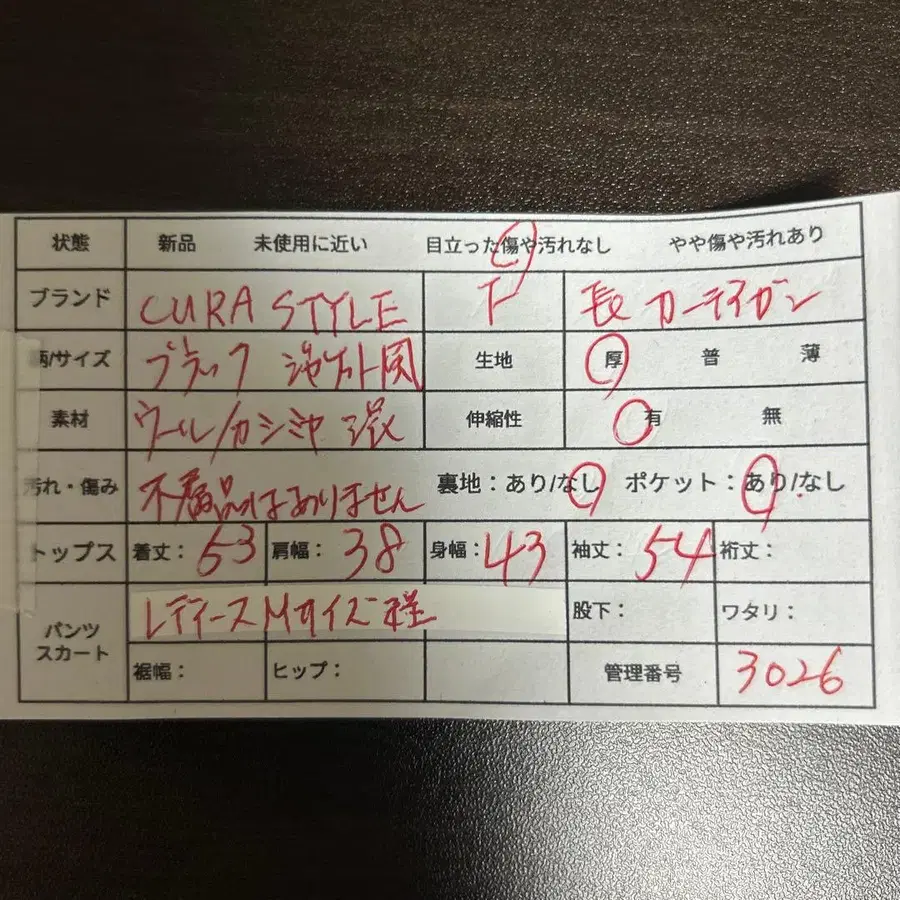 状態 新品 未使用に近い 目立った傷や汚れなし やや傷や汚れあり
ブランド CURA STYLE T 長カーディガン
柄/サイズ ブラック ジャケット風 生地 厚 普 薄
素材 ウール/カシミヤ混 伸縮性 有 無
汚れ・傷み 不属品はありません 裏地：あり/なし ポケット：あり/なし
トップス 着丈：53 肩幅：38 身幅：43 袖丈：54 裄丈：
パンツ レディースMサイズ程 股下： ワタリ：
スカート
裾幅： ヒップ： 管理番号 3026